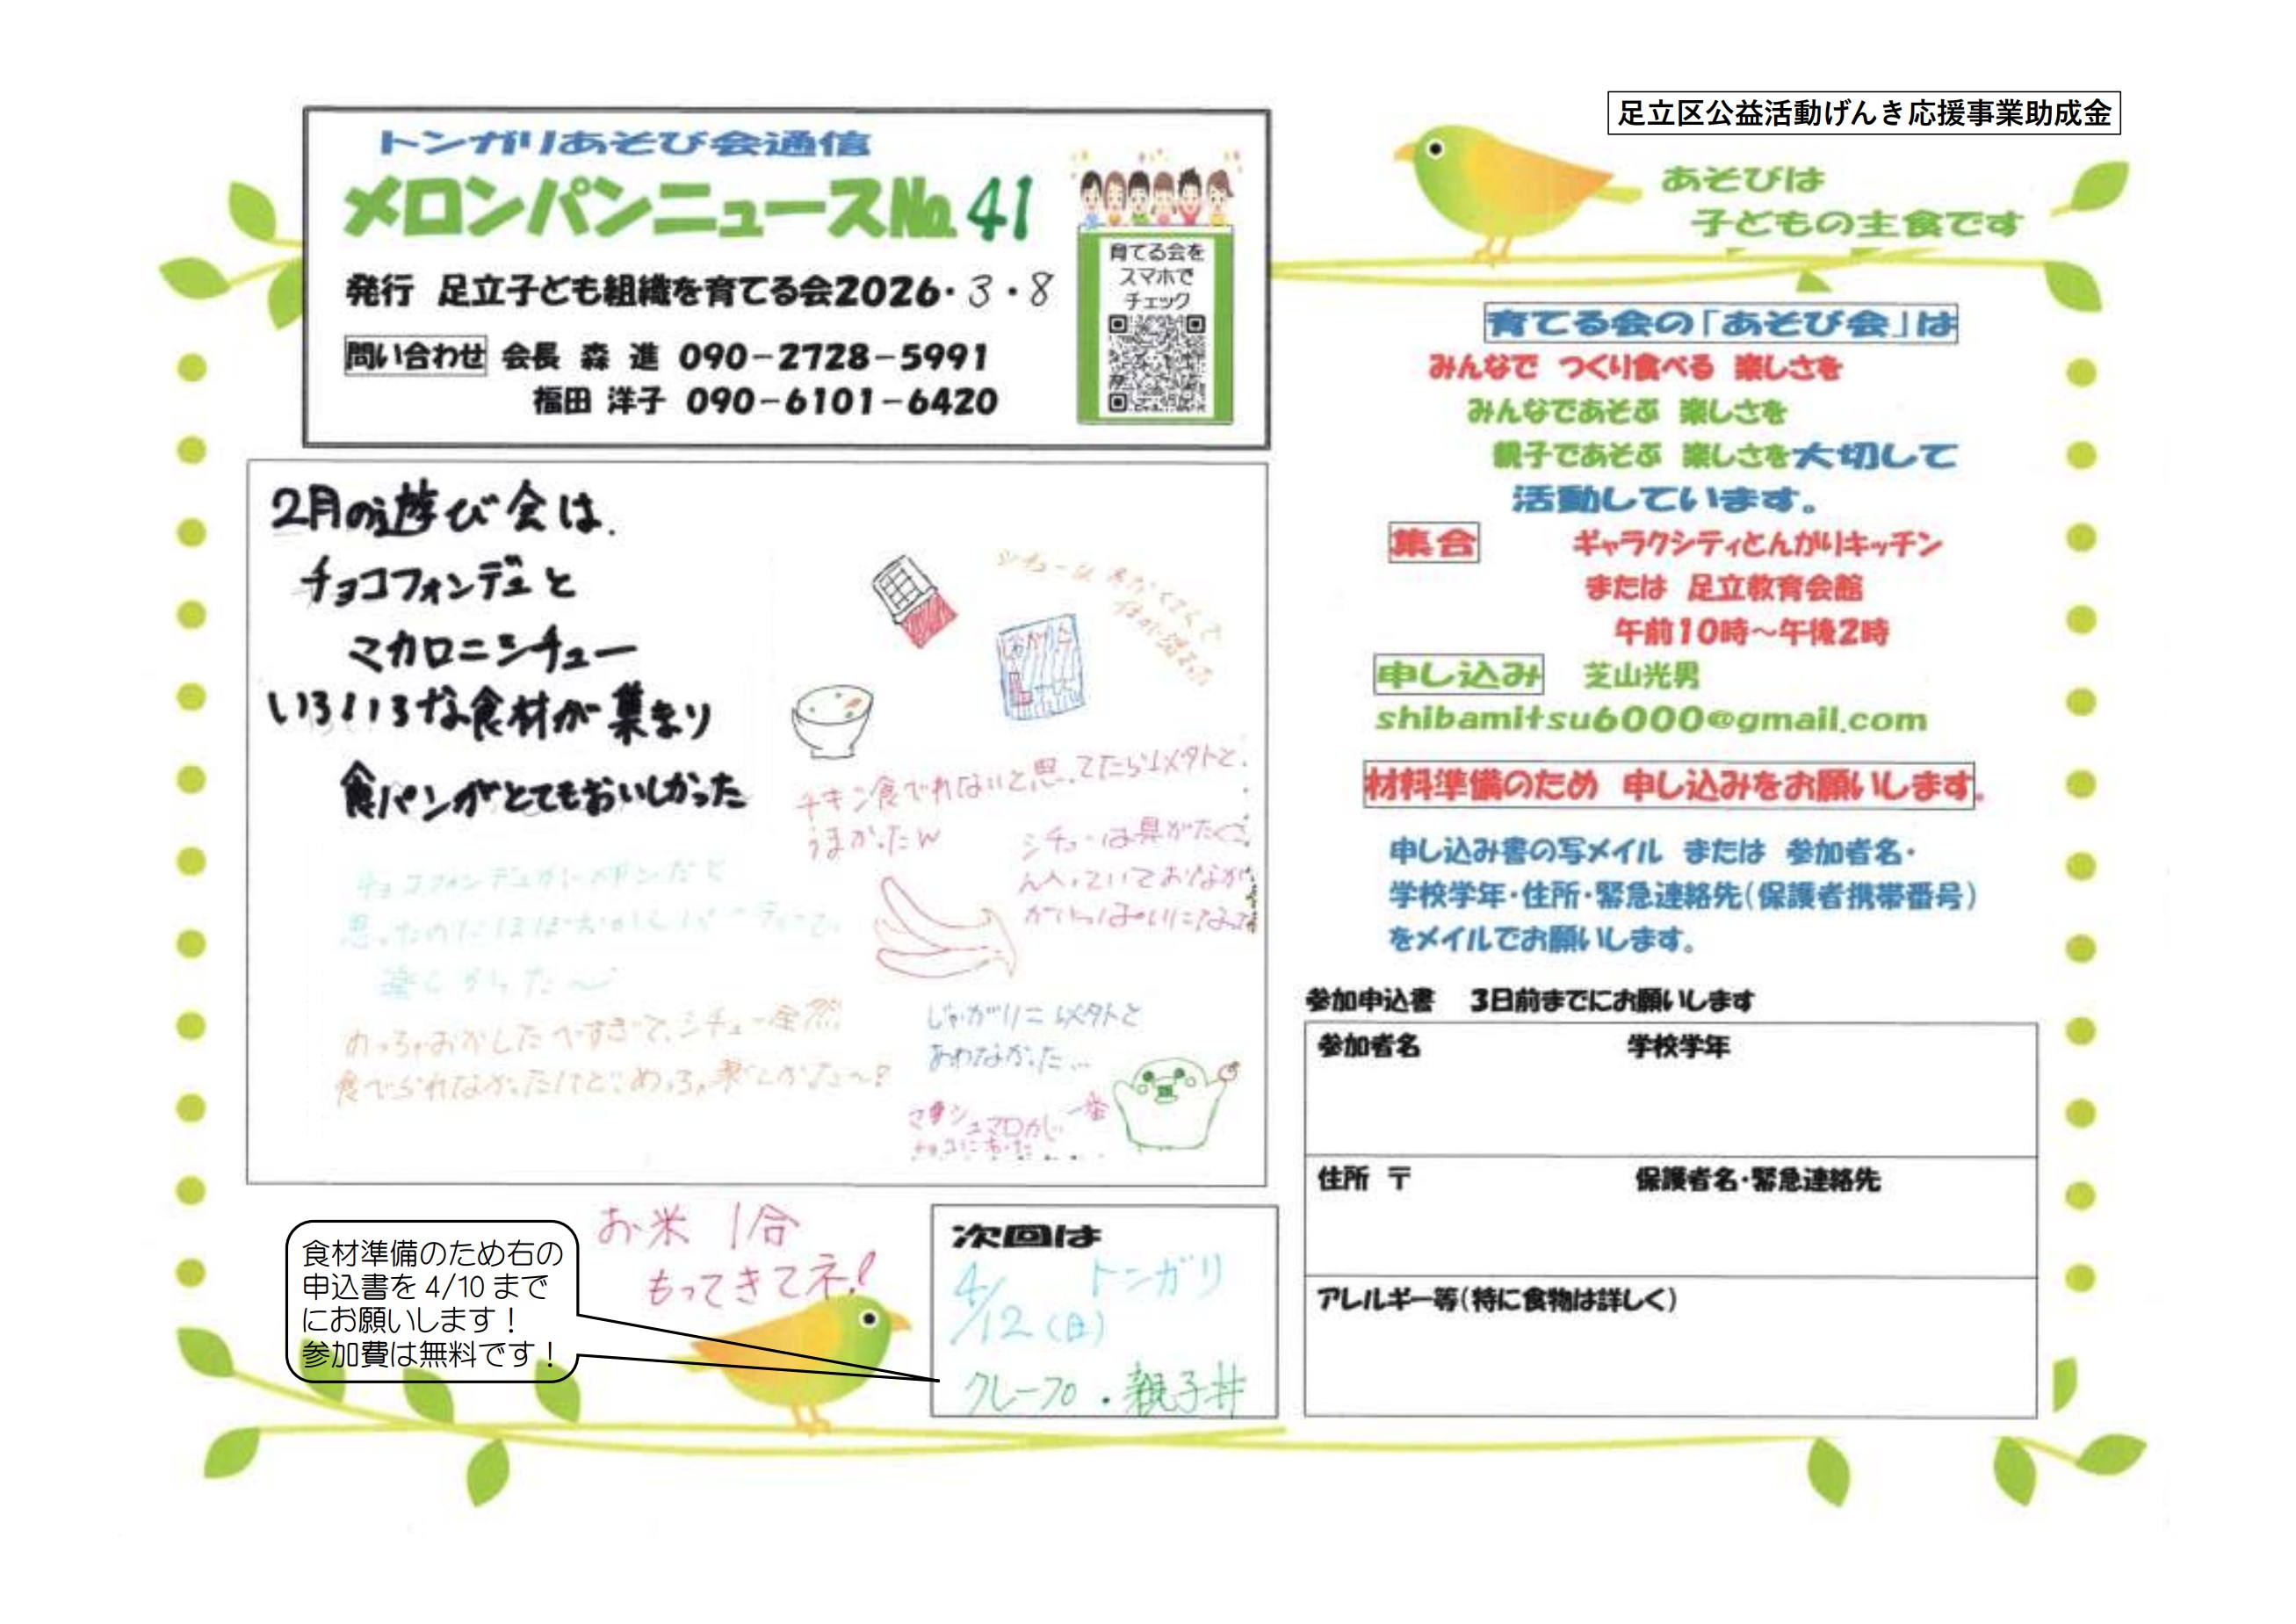 足立区公益活動げんき応援事業助成金
トンガリあそび会通信
メロンパンニュースNo.41
発行 足立子ども組織を育てる会2026・3・8
問い合わせ 会長 森 進 090-2728-5991
福田 洋子 090-6101-6420
育てる会を
スマホで
チェック
あそびは
子どもの主食です
2月の遊び会は、
チョコフォンデュと
マカロニシチュー
いろいろな食材が集まり
食パンがとてもおいしかった
シチューは
チキン食べれないと思ってたら以外と、
うまかったw
シチューは具がたくさ
ん入っていておなか
がいっぱいになった
チョコフォンデュがメインだと
思ったのにほぼおかしパーティーで、
楽しかった〜
めっちゃおかしたべすぎて、シチュー全然
食べられなかったけど、めっちゃ楽しかった〜!
じゃがりこ以外と
あわなかった…
マシュマロが一番
チョコにあった
お米 1合
もってきてネ!
食材準備のため右の
申込書を 4/10 まで
にお願いします!
参加費は無料です!
次回は
4/12(日) トンガリ
クレープ・親子丼
育てる会の「あそび会」は
みんなで つくり食べる 楽しさを
みんなであそぶ 楽しさを
親子であそぶ 楽しさを大切して
活動しています。
集合 ギャラクシティとんがりキッチン
または 足立教育会館
午前10時〜午後2時
申し込み 芝山光男
shibamitsu6000@gmail.com
材料準備のため 申し込みをお願いします。
申し込み書の写メイル または 参加者名・
学校学年・住所・緊急連絡先(保護者携帯番号)
をメイルでお願いします。
参加申込書 3日前までにお願いします
参加者名 学校学年
住所 〒 保護者名・緊急連絡先
アレルギー等(特に食物は詳しく)